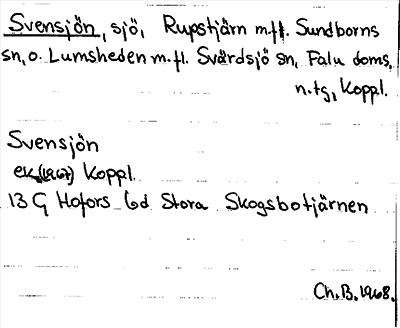 Svensjön, sjö, Rupstjärn m.fl. Sundborns
sn, o. Lumsheden m.fl. Svärdsjö sn, Falu doms.
n.tg, Koppl.
Svensjön
ek (1967) Koppl.
13 G Hofors 6d Stora Skogsbotjärnen
Ch.B. 1968.